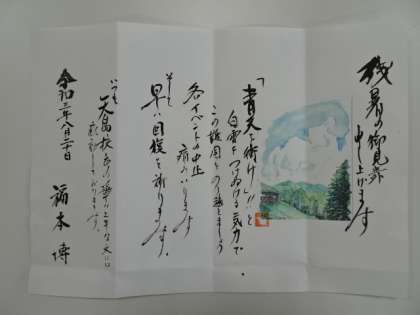 残暑の御見舞
申し上げます
「青天を衝け！！」と
白雲をつきぬける気力で
この難局をのり越えましょう
各イベントの中止
痛みいります
そして
早い回復を祈ります。
いつも
矢島校長の
感動しております。
令和三年八月二十日
福本 博